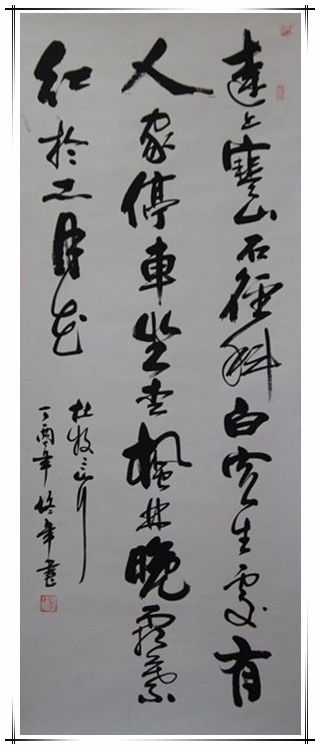 遠上寒山石徑斜白雲生處有
人家停車坐愛楓林晚霜葉
紅於二月花
杜牧山行
丁酉年書